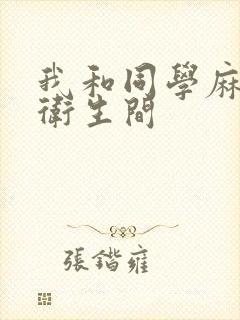 我和同學麻
衛生間
張鍇雍